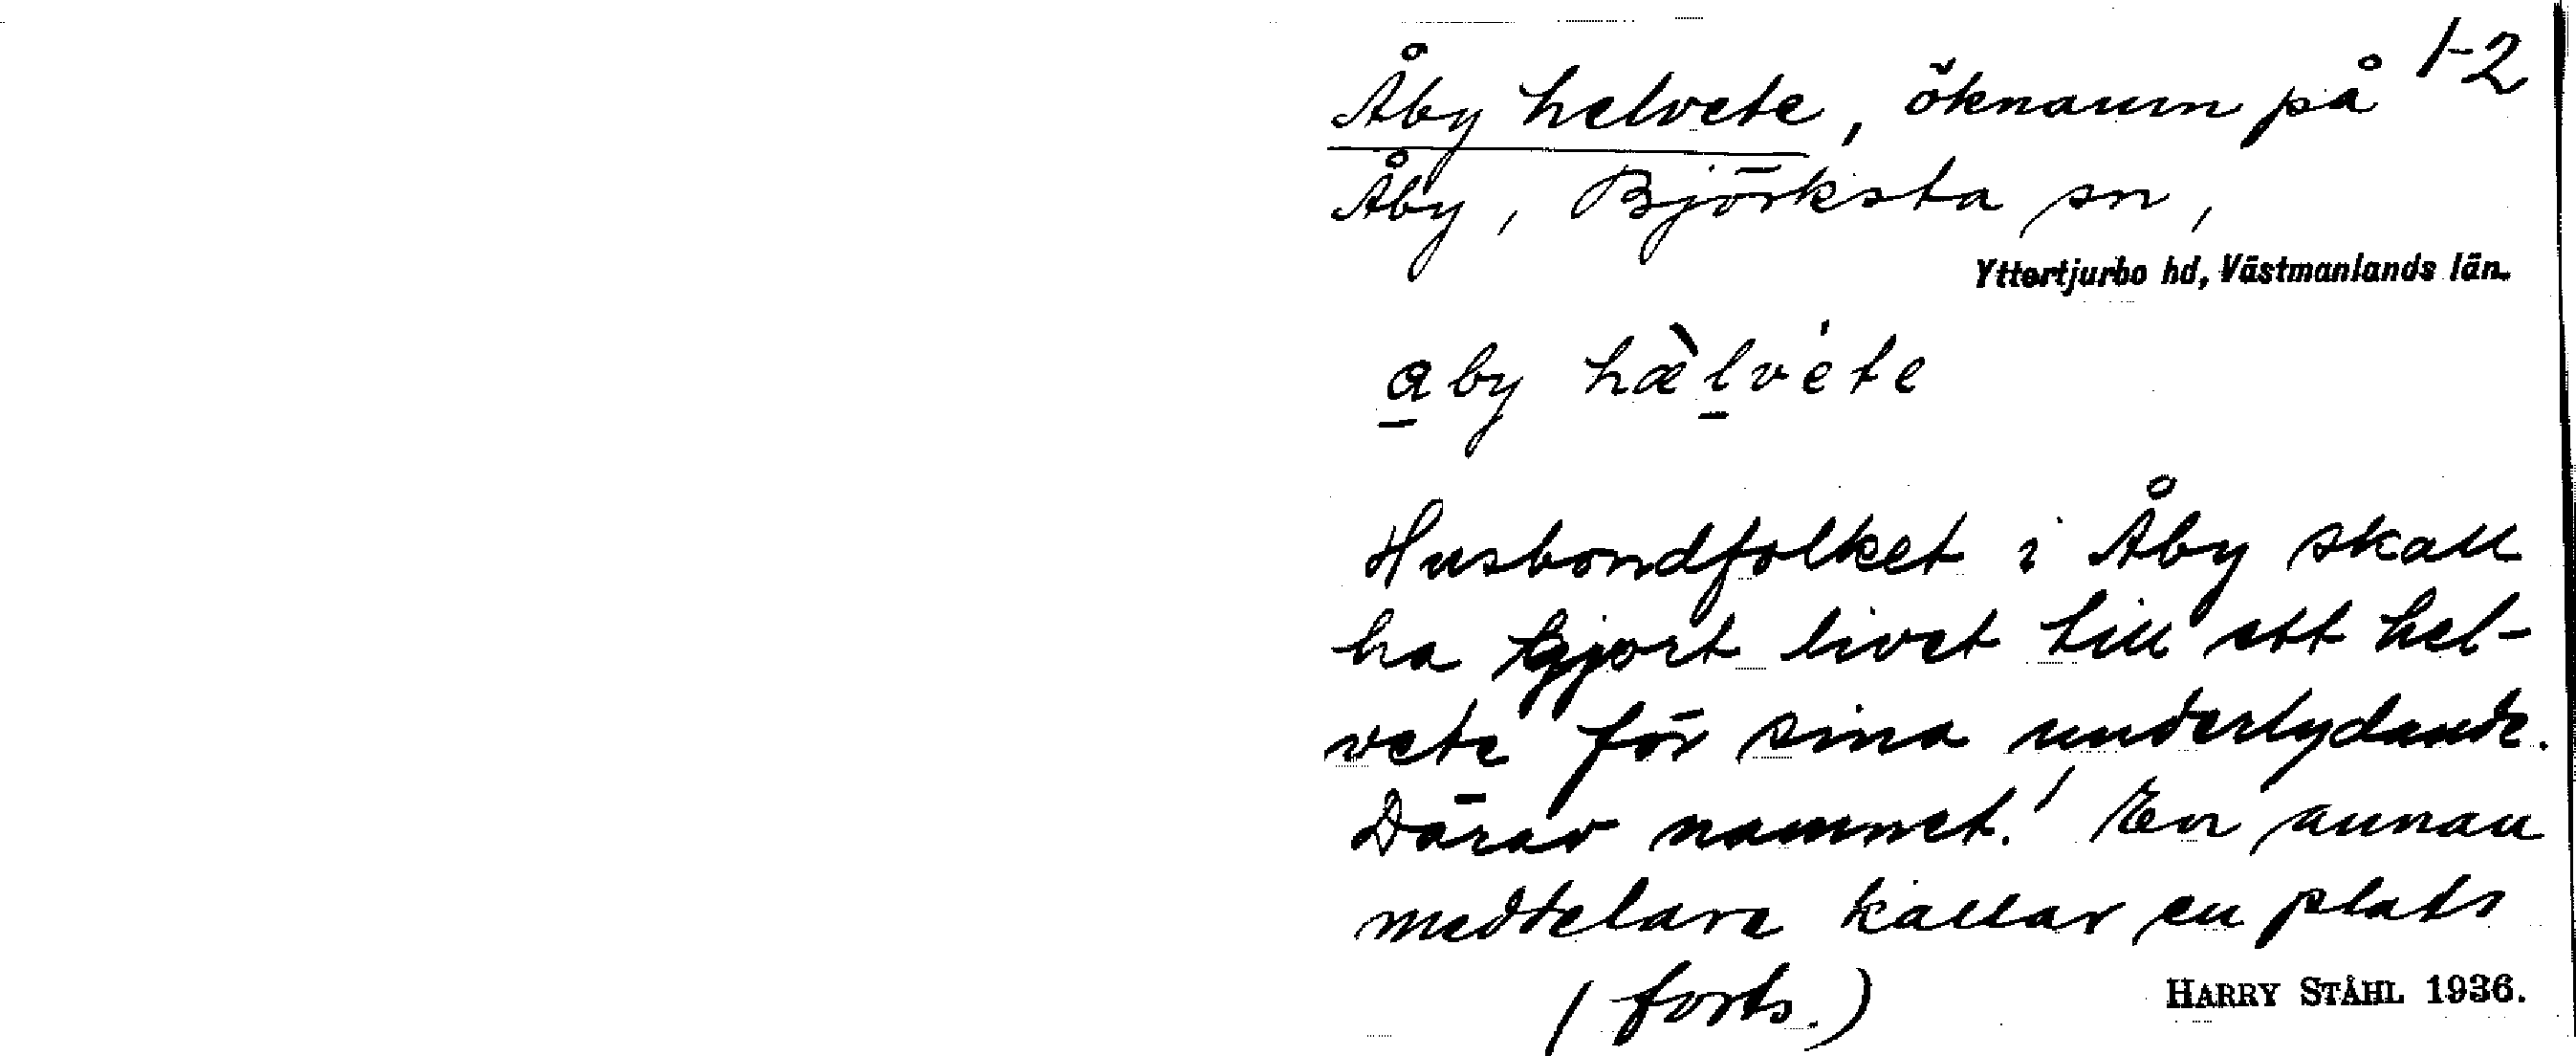 1-2
Åby helvete, öknamn på
Åby, Björksta sn,
Yttertjurbo hd, Västmanlands län.
a̲by hæ̀l̲véte
Husbondfolket i Åby skall
ha gjort livet till ett hel-
vete för sina underlydande.
Därav namnet! En annan
meddelare kallar en plats
(forts.)
HARRY STÅHL 1936.